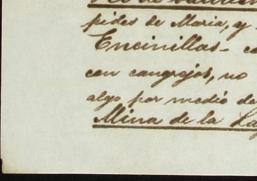 pides de Maria, y
Encinillas - co
con cangrejos, no
algo por medio de
Mina de la La